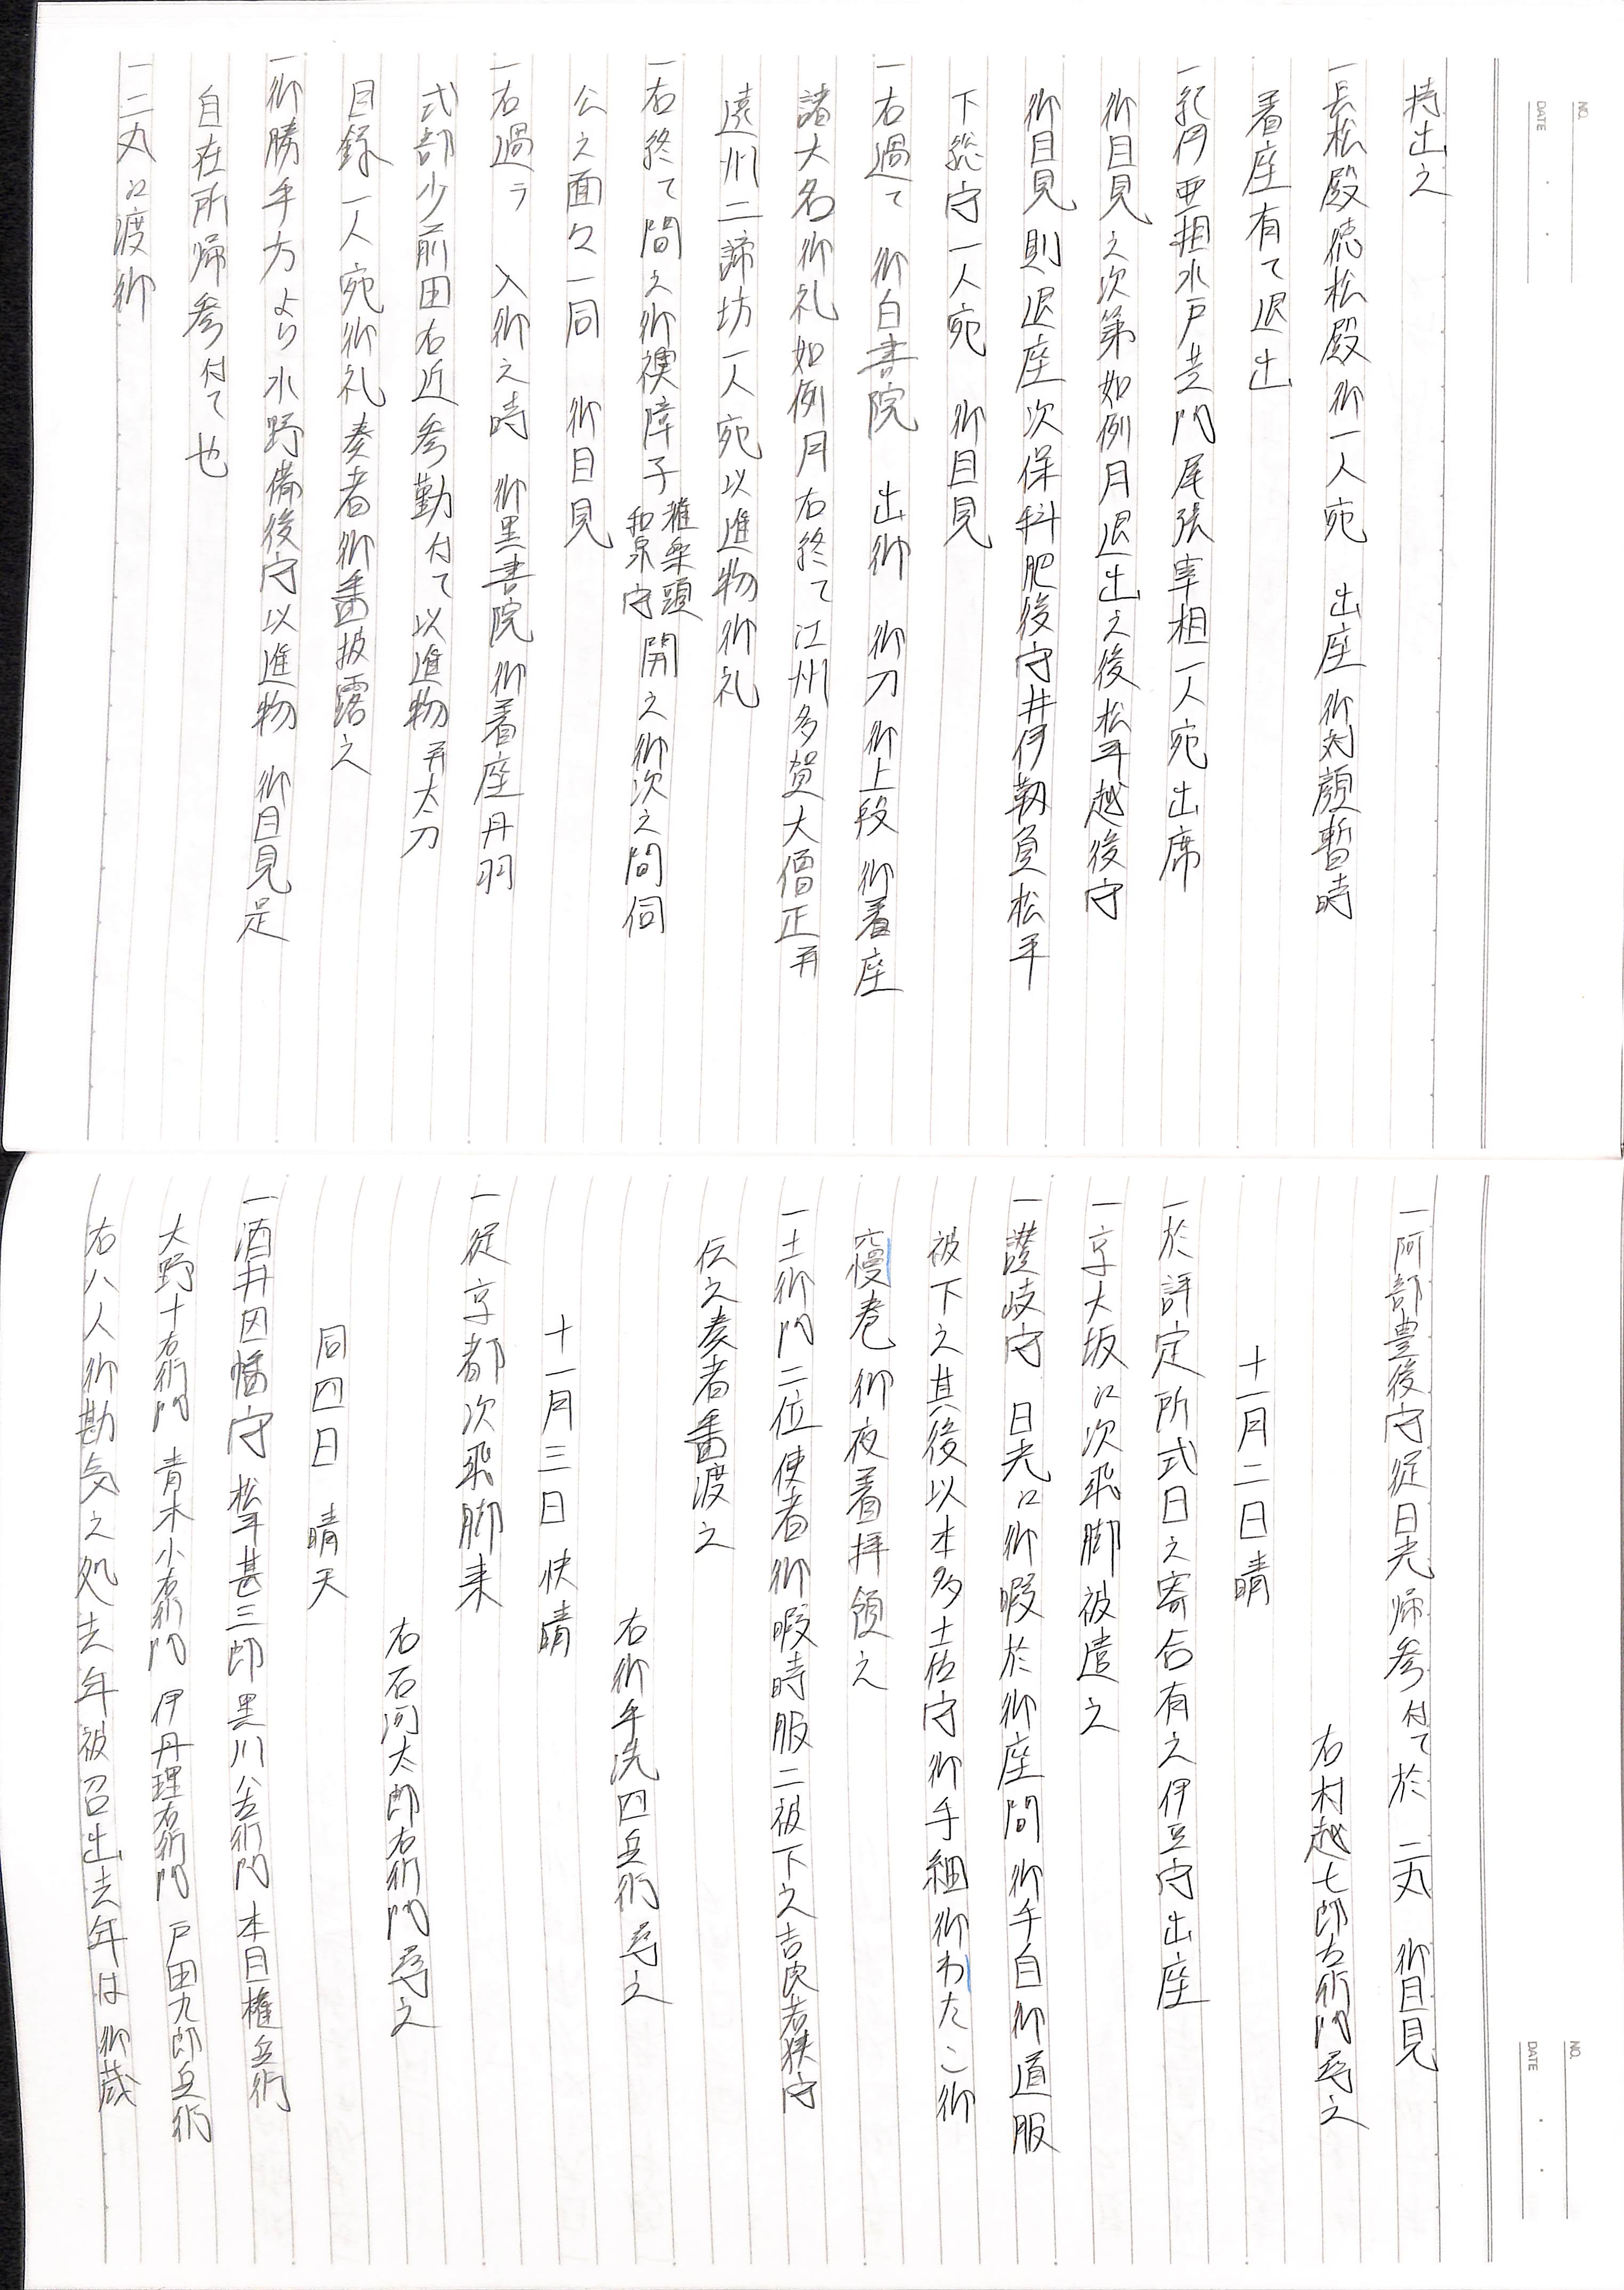 NO.
DATE
持出之
一長松殿徳松殿御一人宛 出座御対顔暫時
着座有て退出
一紀伊亜相水戸黄門尾張宰相一人宛出席
御目見之次第如例月退出之後松平越後守
御目見則退座次保科肥後守井伊靱負松平
下総守一人宛 御目見
一右過て 御白書院 出御 御刀御上段御着座
諸大名御礼如例月右終て江州多賀大僧正并
遠州二諦坊一人宛以進物御礼
一右終て間之御襖障子 雅楽頭 和泉守 開之御次之間伺
公之面々一同 御目見
一右過テ 入御之時 御黒書院御着座丹羽
式部少前田右近参勤付て以進物并太刀
目録一人宛御礼奏者御番披露之
一御勝手方より水野備後守以進物 御目見是
自在所帰参付て也
一二丸江渡御
NO.
DATE
一阿部豊後守従日光帰参付て於 二丸 御目見
右村越七郎左衛門尋之
十一月二日晴
一於評定所式日之寄合有之伊豆守出座
一京大坂江次飛脚被遣之
一讃岐守 日光江御暇於御座間御手自御道服
被下之其後以本多土佐守御手細御わたこ御
慢巻御夜着拝領之
一土御門二位使者御暇時服二被下之吉良若狭守
伝之奏者番渡之
右御手洗四兵衛尋之
十一月三日快晴
一従京都次飛脚来
右石河太郎右衛門尋之
同四日 晴天
一酒井因幡守 松平甚三郎 黒川八左衛門 本目権兵衛
大野十右衛門 青木小右衛門 伊丹理右衛門 戸田九郎兵衛
右八人御勘気之処去年被召出去年は御蔵